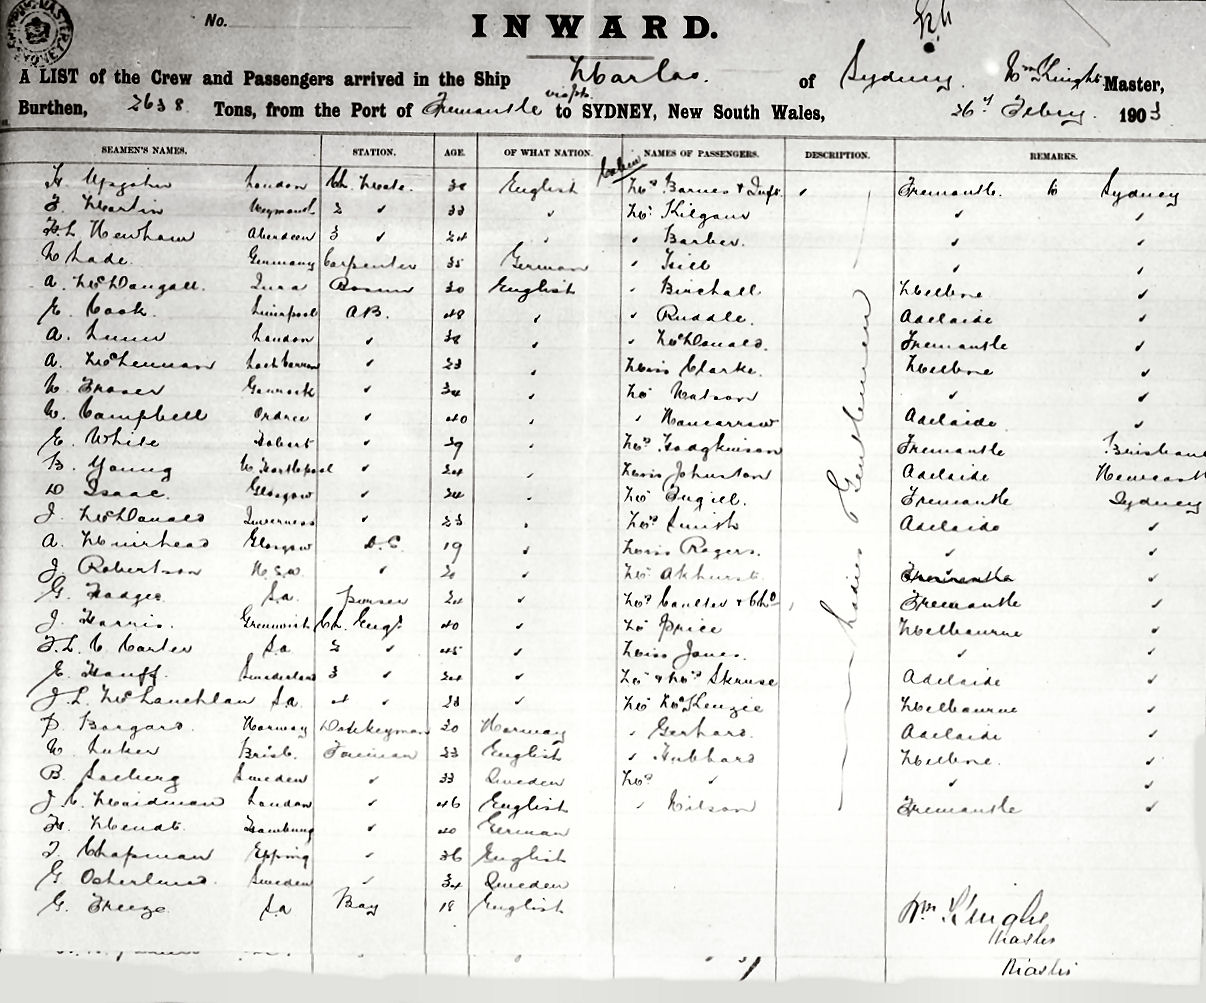 No.
INWARD.
A LIST of the Crew and Passengers arrived in the Ship of Sydney. Wm Knight Master,
Burthen, 2638 Tons, from the Port of Fremantle via pts to SYDNEY, New South Wales, 26th Febry. 1903
SEAMEN'S NAMES. STATION. AGE. OF WHAT NATION. NAMES OF PASSENGERS. DESCRIPTION. REMARKS.
London Ch. Mate. English Mrs Barnes & Inft. Fremantle to Sydney
F. Martin Weymouth 2 33 Mr Kilgour
Newham Aberdeen 3 24 Barber.
Germany Carpenter 35 German
A. McDougall. Bosun 30 English Birchall Melbne
E. Cook. Liverpool A.B. 48 Ruddle. Adelaide
A. London 38 McDonald. Fremantle
A. McLennan 23 Miss Clarke. Melbne
W. Fraser Gourock 34 Mr Watson
W. Campbell 40 Nancarrow Adelaide
E. White Hobart 39 Mrs Hodgkinson Fremantle Brisbane
B. Young W. Hartlepool 24 Miss Johnston Adelaide Newcastle
D Isaac. Glasgow 34 Mr Fremantle Sydney
J. McDonald Inverness 23 Mrs Smith Adelaide
A. Muirhead Glasgow 19 Miss Rogers.
J. Robertson N.S.W. 20 Mr Akhurst.
G. Hodges S.a. purser 24 Mrs Coulter & Chd Fremantle
J. Harris. Greenwich Ch. Engr 40 Mr Price Melbourne
F.L. C. Carter S.a 2 45 Miss Jones.
E. Hauff Sunderland 3 24 Mr & Mrs Skruse Adelaide
J.L. McLauchlan S.a. 4 28 Mr McKenzie Melbourne
Norway Donkeyman 30 Norway Gerhard. Adelaide
W. Luker Brisb. Fireman 23 English Hubbard Melbne.
B. Sweden 33 Sweden Mrs
J. C. Maidman London 46 English Wilson Fremantle
Hamburg 40 German
T. Chapman Epping 36 English
G. Osterlund. Sweden 34 Sweden
G. Freeze. S.a Boy 18 English
Ladies & Gentlemen
Wm Knight
Master
Master